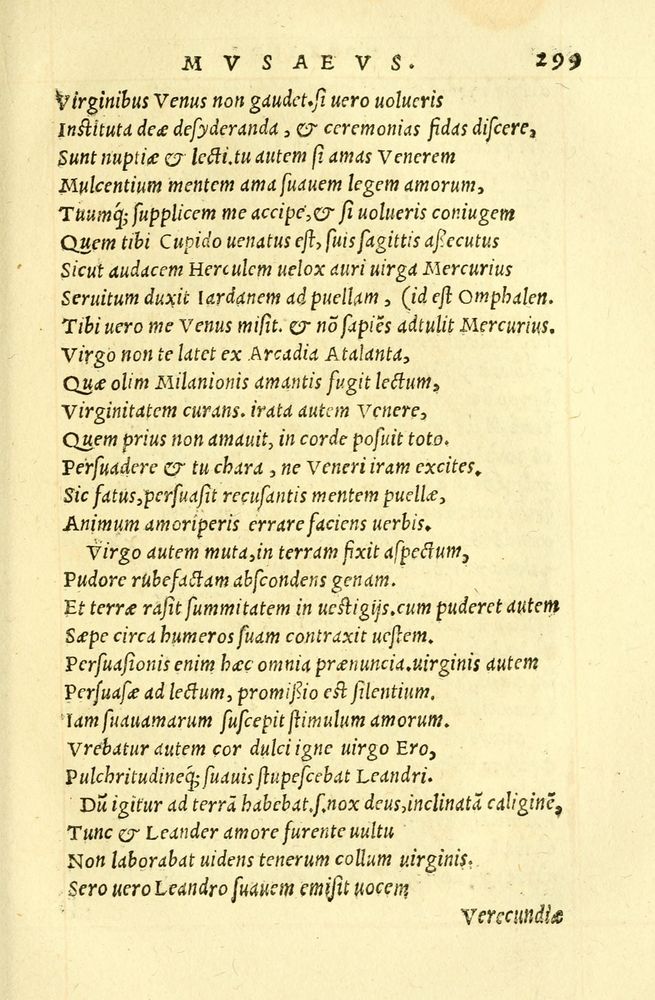 MVSAEVS. 299
Virginibus Venus non gaudet.si uero uolueris
Instituta deæ desyderanda, & ceremonias fidas discere,
Sunt nuptiæ & lecti.tu autem si amas Venerem
Mulcentium mentem ama suauem legem amorum,
Tuumq; supplicem me accipe,& si uolueris coniugem
Quem tibi Cupido uenatus est, suis sagittis assecutus
Sicut audacem Herculem uelox auri uirga Mercurius
Seruitum duxit Iardanem ad puellam, (id est Omphalen.
Tibi uero me Venus misit. & nō sapiēs adtulit Mercurius.
Virgo non te latet ex Arcadia Atalanta,
Quæ olim Milanionis amantis fugit lectum,
Virginitatem curans. irata autem Venere,
Quem prius non amauit, in corde posuit toto.
Persuadere & tu chara, ne Veneri iram excites.
Sic fatus,persuasit recusantis mentem puellæ,
Animum amoriperis errare faciens uerbis.
Virgo autem muta,in terram fixit aspectum,
Pudore rubefactam abscondens genam.
Et terræ rasit summitatem in uestigijs.cum puderet autem
Sæpe circa humeros suam contraxit uestem.
Persuasionis enim hæc omnia prænuncia.uirginis autem
Persuasæ ad lectum, promissio est silentium.
Iam suauamarum suscepit stimulum amorum.
Vrebatur autem cor dulci igne uirgo Ero,
Pulchritudineq; suauis stupescebat Leandri.
Dū igitur ad terrā habebat.s.nox deus,inclinatā caliginē,
Tunc & Leander amore furente uultu
Non laborabat uidens tenerum collum uirginis.
Sero uero Leandro suauem emisit uocem
Verecundiæ